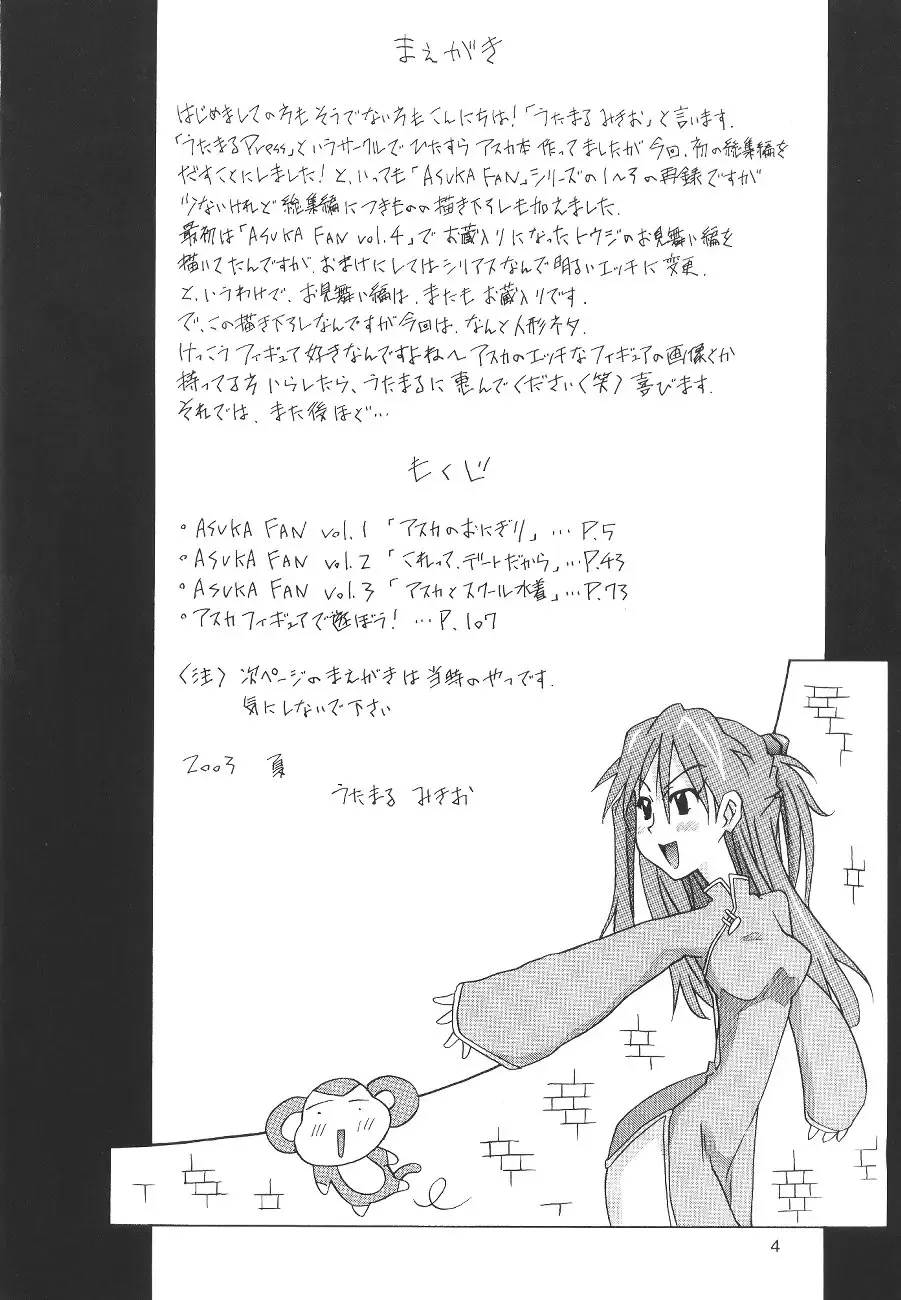 まえがき
はじめましての方もそうでない方もこんにちは!「うたまる みきお」と言います.
「うたまるPress」というサークルでひたすら アスカ本 作ってましたが 今回、初の総集編を
だすことにしました!と、いっても「ASUKA FAN」シリーズの1〜3の再録ですが
少ないけれど 総集編につきものの描き下ろしも加えました.
最初は「ASUKA FAN vol.4」で お蔵入りになった トウジのお見舞い編を
描いてたんですが、おまけにしてはシリアスなんで明るいエッチに変更.
と、いうわけで、お見舞い編は、またも お蔵入りです.
で、この描き下ろしなんですが今回は、なんと人形ネタ.
けっこう フィギュア 好きなんですよね〜 アスカのエッチなフィギュアの画像とか
持ってる方 いらしたら、うたまるに 恵んでください(笑) 喜びます.
それでは、また後ほど…
もくじ
◦ASUKA FAN vol.1 「アスカのおにぎり」…P.5
◦ASUKA FAN vol.2 「これって、デートだから」…P.43
◦ASUKA FAN vol.3 「アスカとスクール水着」…P.73
◦アスカフィギュアで遊ぼう! …P.107
〈注〉 次ページのまえがきは当時のやつです.
気にしないで下さい
2003 夏
うたまる みきお
4